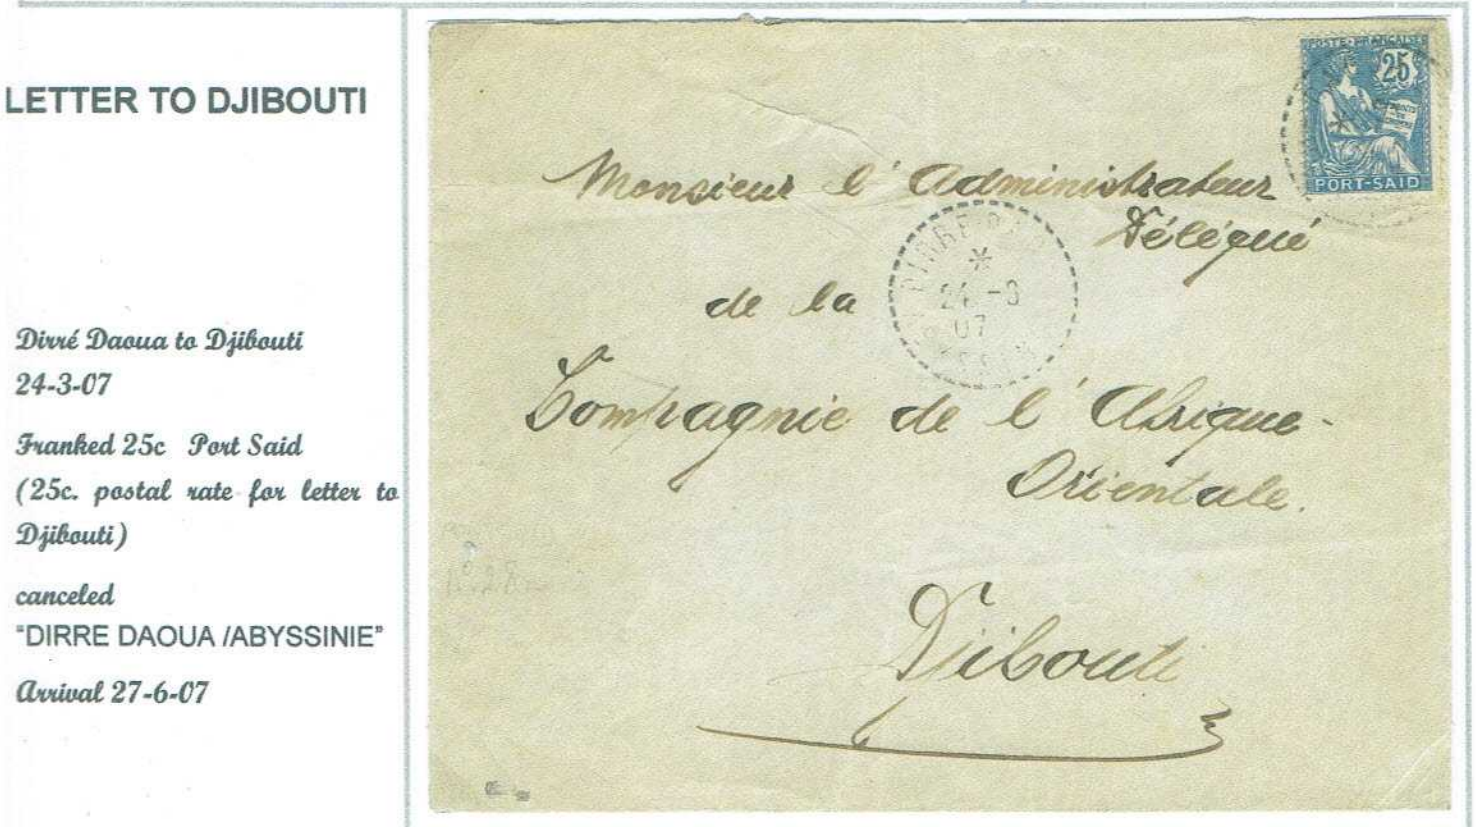 LETTER TO DJIBOUTI
Dirré Daoua to Djibouti
24-3-07
Franked 25c Port Said
(25c. postal rate for letter to
Djibouti)
canceled
"DIRRE DAOUA /ABYSSINIE"
Arrival 27-6-07
POSTE FRANÇAISE
25
PORT-SAID
Monsieur l'Administrateur
Délégué
de la
Compagnie de l'Afrique-
Orientale.
Djibouti
DIRRE-DAOUA
24 -3
07